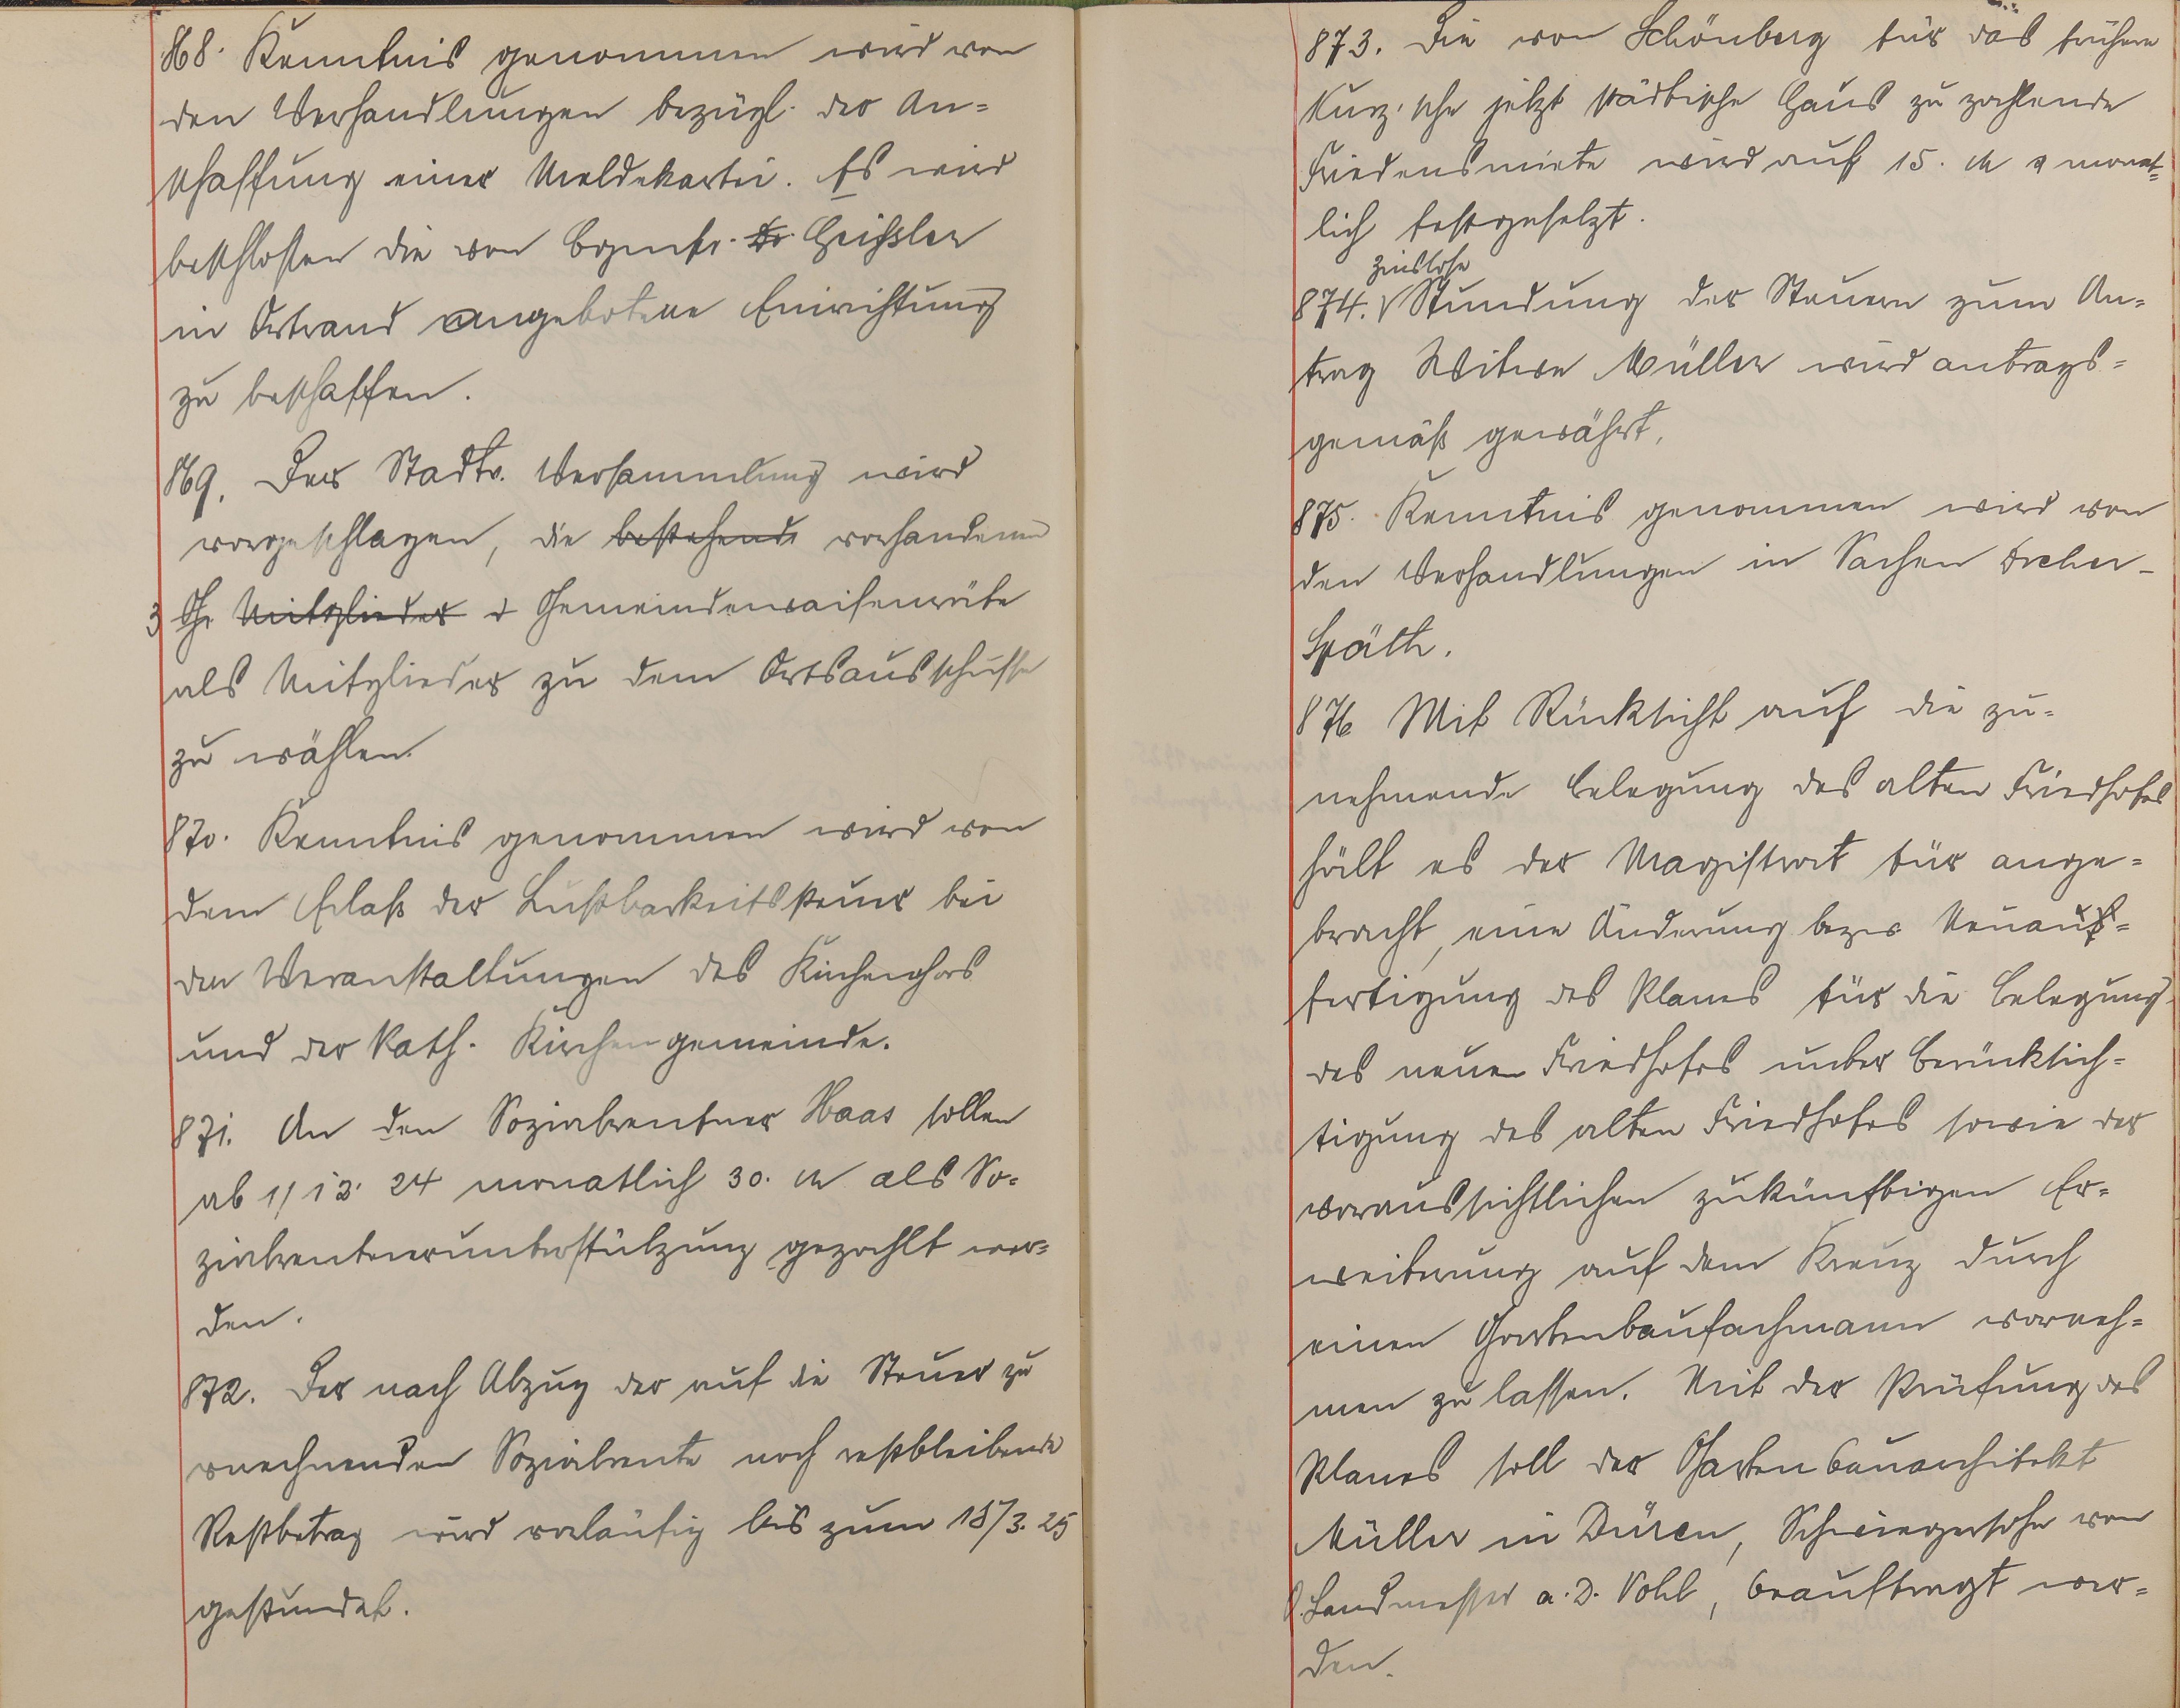 868. Kenntnis genommen wird von
den Verhandlungen bezügl. der An=
schaffung einer Meldekartei. Es wird
beschlossen die von Bgmstr. Dr. Geißler
in Ortrand angebotene Einrichtung
zu beschaffen.
869. Der Stadtv. Versammlung wird
vorgeschlagen, die bestehende vorhandenen
3 Ge Mitglieder d Gemeindewaisenräte
als Mitglieder zu dem Ortsausschusse
zu wählen.
870. Kenntnis genommen wird von
dem Erlaß der Lustbarkeitssteuer bei
den Veranstaltungen des Kirchenchors
und der kath. Kirchengemeinde.
871. An den Sozialrentner Haas sollen
ab 1/12. 24 monatlich 30. M als So=
zialrentnerunterstützung gezahlt wer=
den.
872. Der nach Abzug der auf die Steuer zu
verrechnenden Sozialrente noch restbleibende
Restbetrag wird vorläufig bis zum 15/3. 25
gestundet.
873. Die von Schönberg für das frühere
Kurz'sche jetzt städtische Haus zu zahlende
Friedensmiete wird auf 15. M monat=
lich festgesetzt.
zinslose
874. Stundung der Steuern zum An=
trag Witwe Müller wird antrags=
gemäß gewährt.
875. Kenntnis genommen wird von
den Verhandlungen in Sachen Dreher-
Späth.
876 Mit Rücksicht auf die zu=
nehmende Belegung des alten Friedhofes
hält es der Magistrat für ange=
bracht, eine Änderung bezw Neuauf=
fertigung des Planes für die Belegung
des neuen Friedhofes unter Berücksich=
tigung des alten Friedhofes sowie der
voraussichtlichen zukünftigen Er=
weiterung auf dem Kreuz durch
einen Gartenbaufachmann vorneh=
men zu lassen. Mit der Prüfung des
Planes soll der Gartenbauarchitekt
Müller in Düren, Schwiegersohn von
O.Landmesser a. D. Vohl, beauftragt wer=
den.